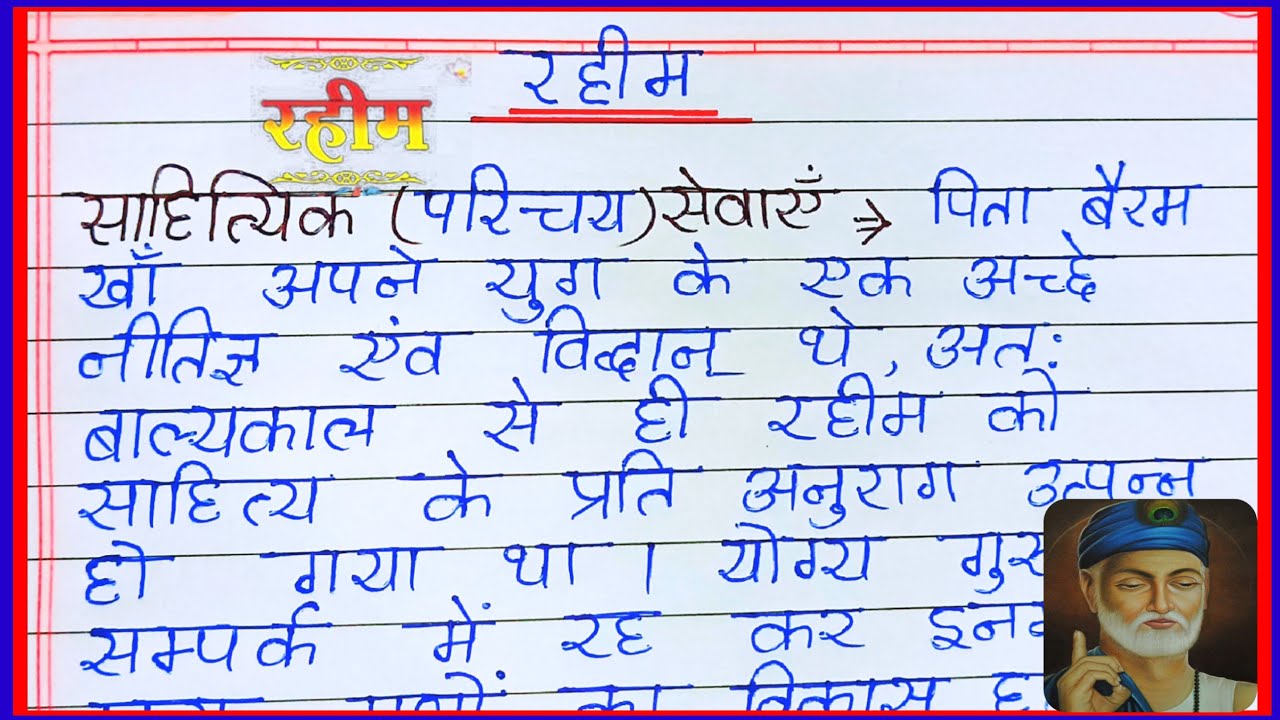 रहीम
रहीम
साहित्यिक (परिचय) सेवाएँ ⇒ पिता बैरम
खाँ अपने युग के एक अच्छे
नीतिज्ञ एंव विद्वान् थे, अत:
बाल्यकाल से ही रहीम को
साहित्य के प्रति अनुराग उत्पन्न
हो गया था । योग्य
सम्पर्क में रह कर
का विकास